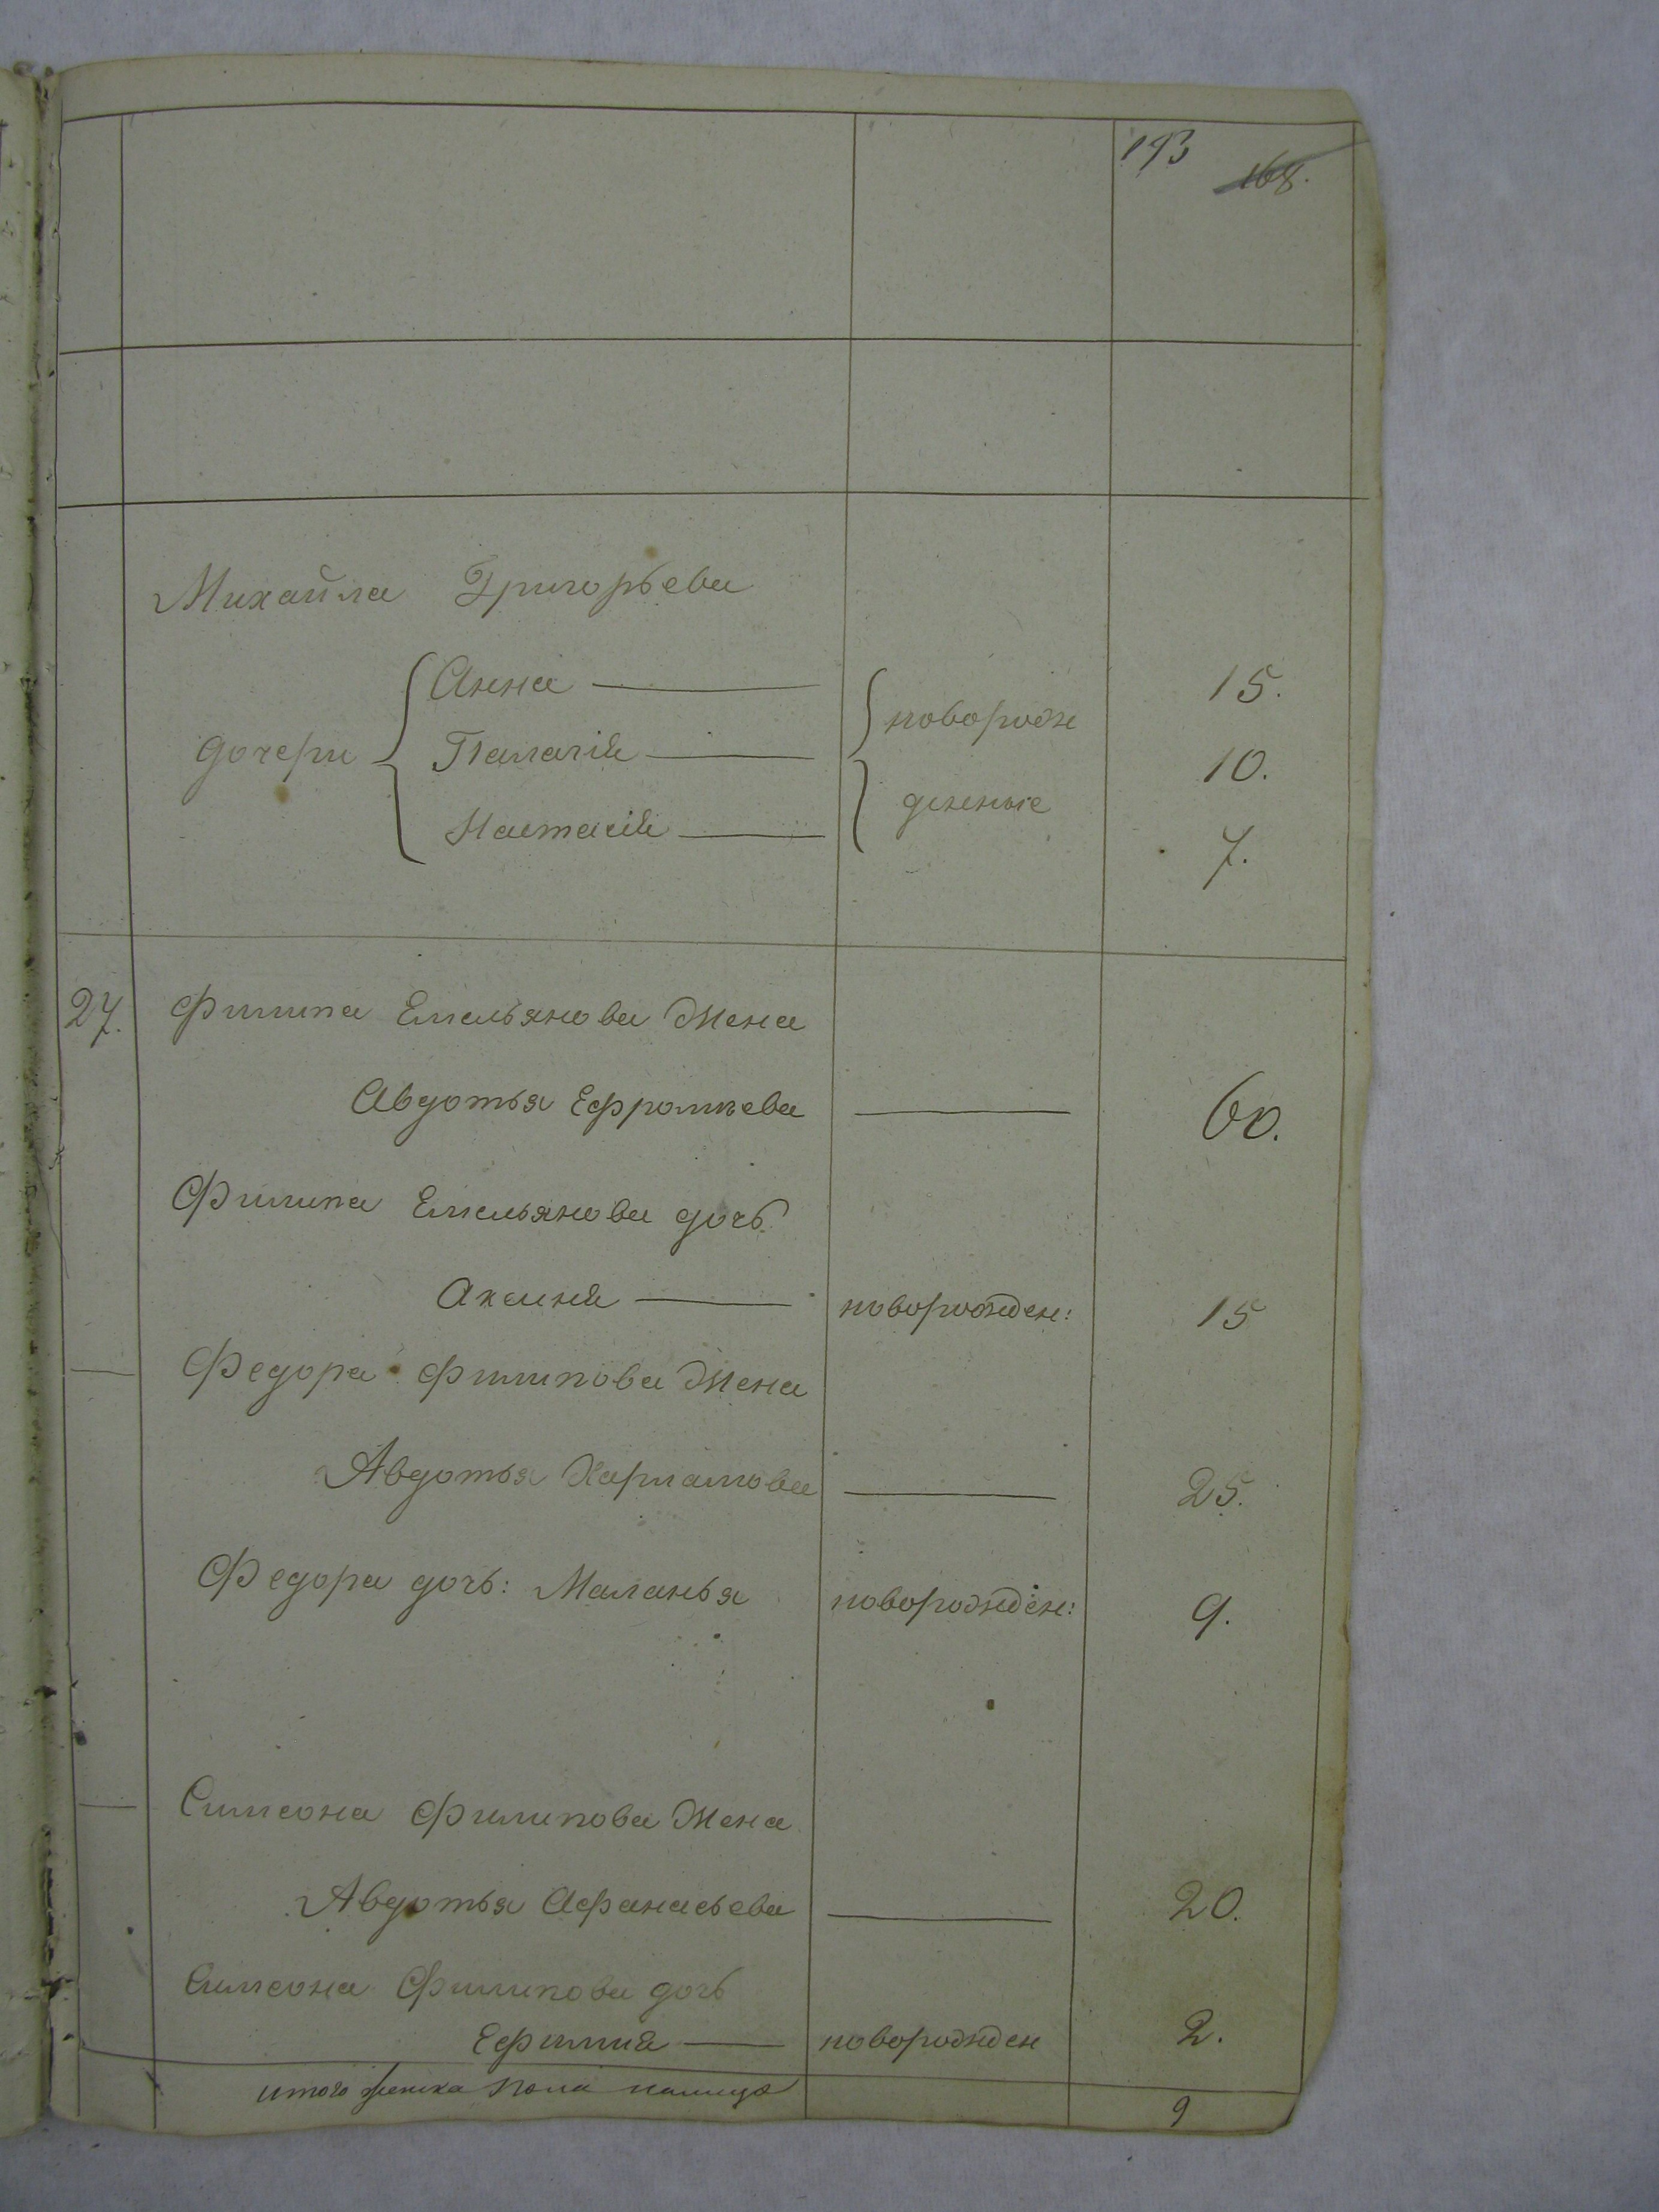 193 168.
Михайла Григорьева
Анна 15.
новорож
дочери Палагія 10.
денные
Настасія 7.
27. Филипа Емельянова Жена
Авдотья Ефромиева 60.
Филипа Емельянова дочь
Аксинія новорожден: 15
Федора Филипова Жена
Авдотья Харламова 25.
Федора дочь: Маланья новорожден: 9.
Симеона Филипова Жена
Авдотья Афанасьева 20.
Симеона Филипова дочь
Ефимия новорожден 2.
итого женска пола налицо 9